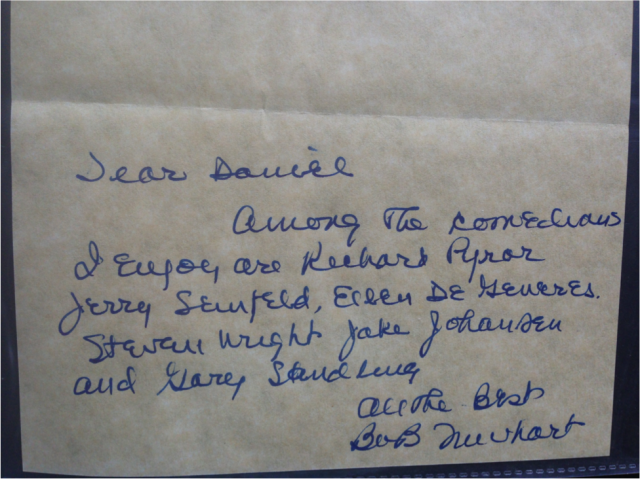 Dear Daniel
Among The comedians
I Enjoy are Richard Pyror
Jerry Seinfeld, Ellen De Generes.
Steven Wright Jake Johansen
and Garey Shandling
All The Best
Bob Newhart